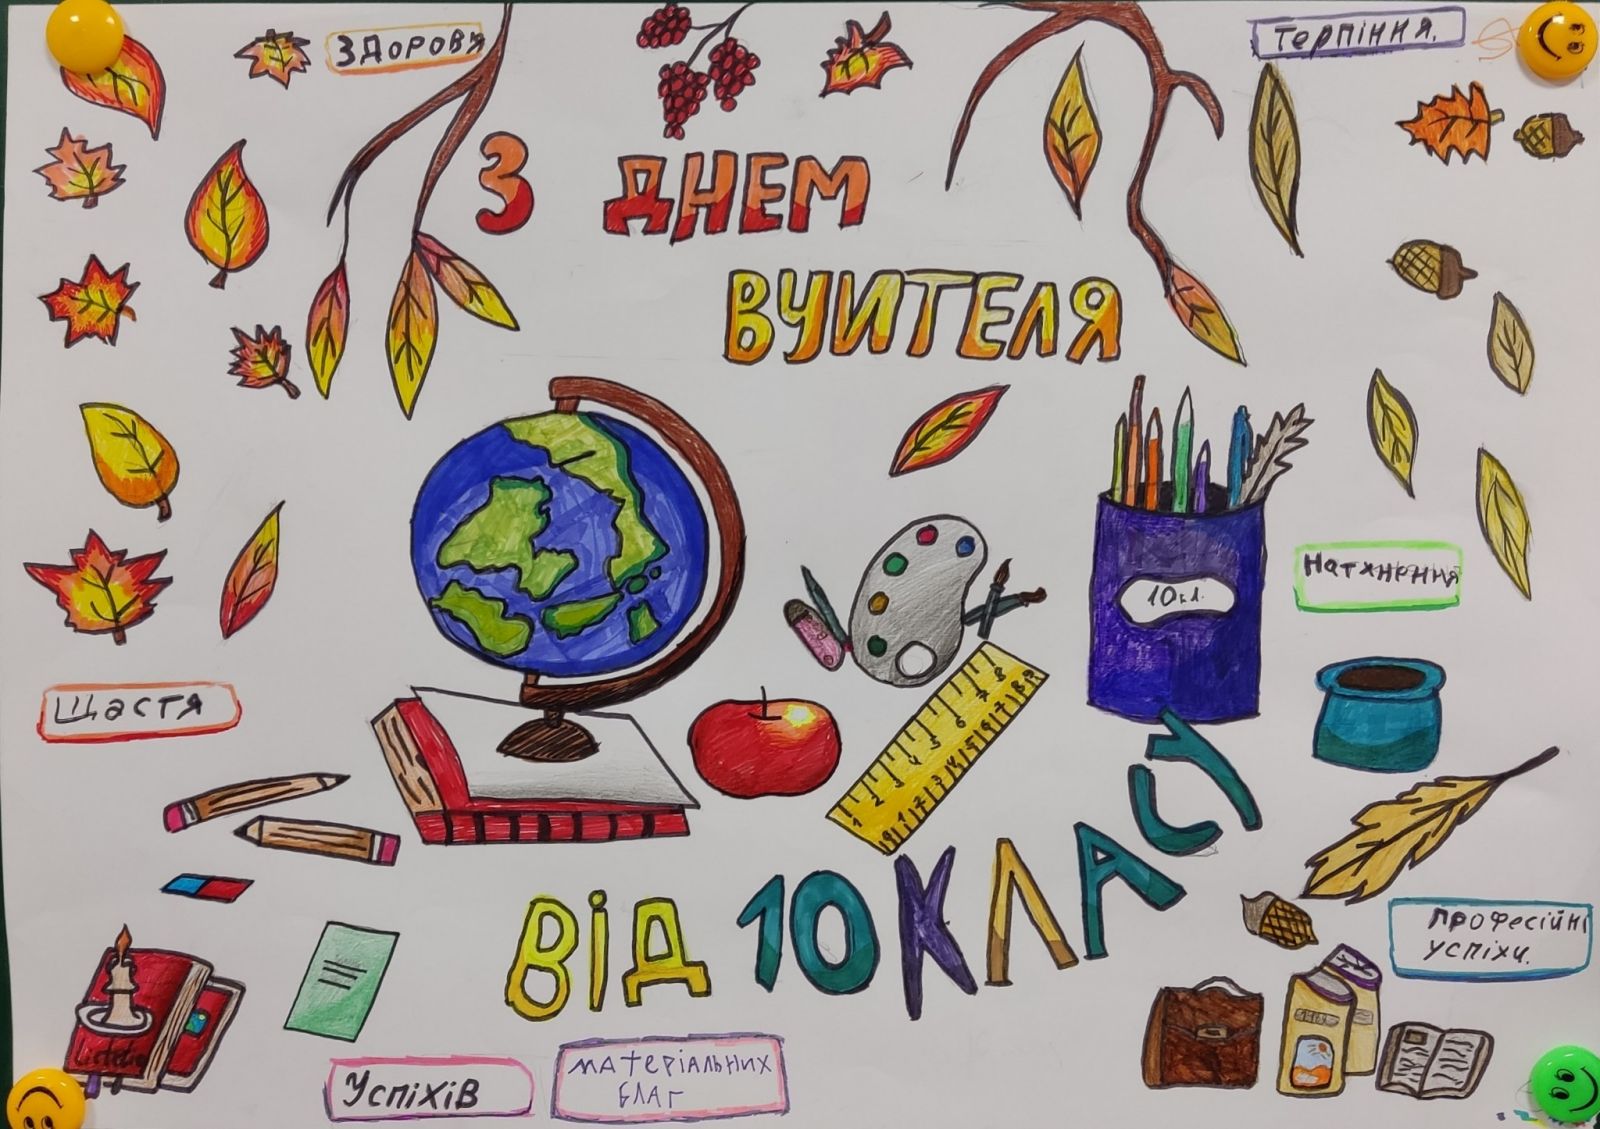 ЗДОРОВЯ
Терпіння.
З ДНЕМ
ВЧИТЕЛЯ
10 кл.
Натхнення
Щастя
ВІД 10 КЛАСУ
професійні
успіхи.
Успіхів
матеріальних
благ